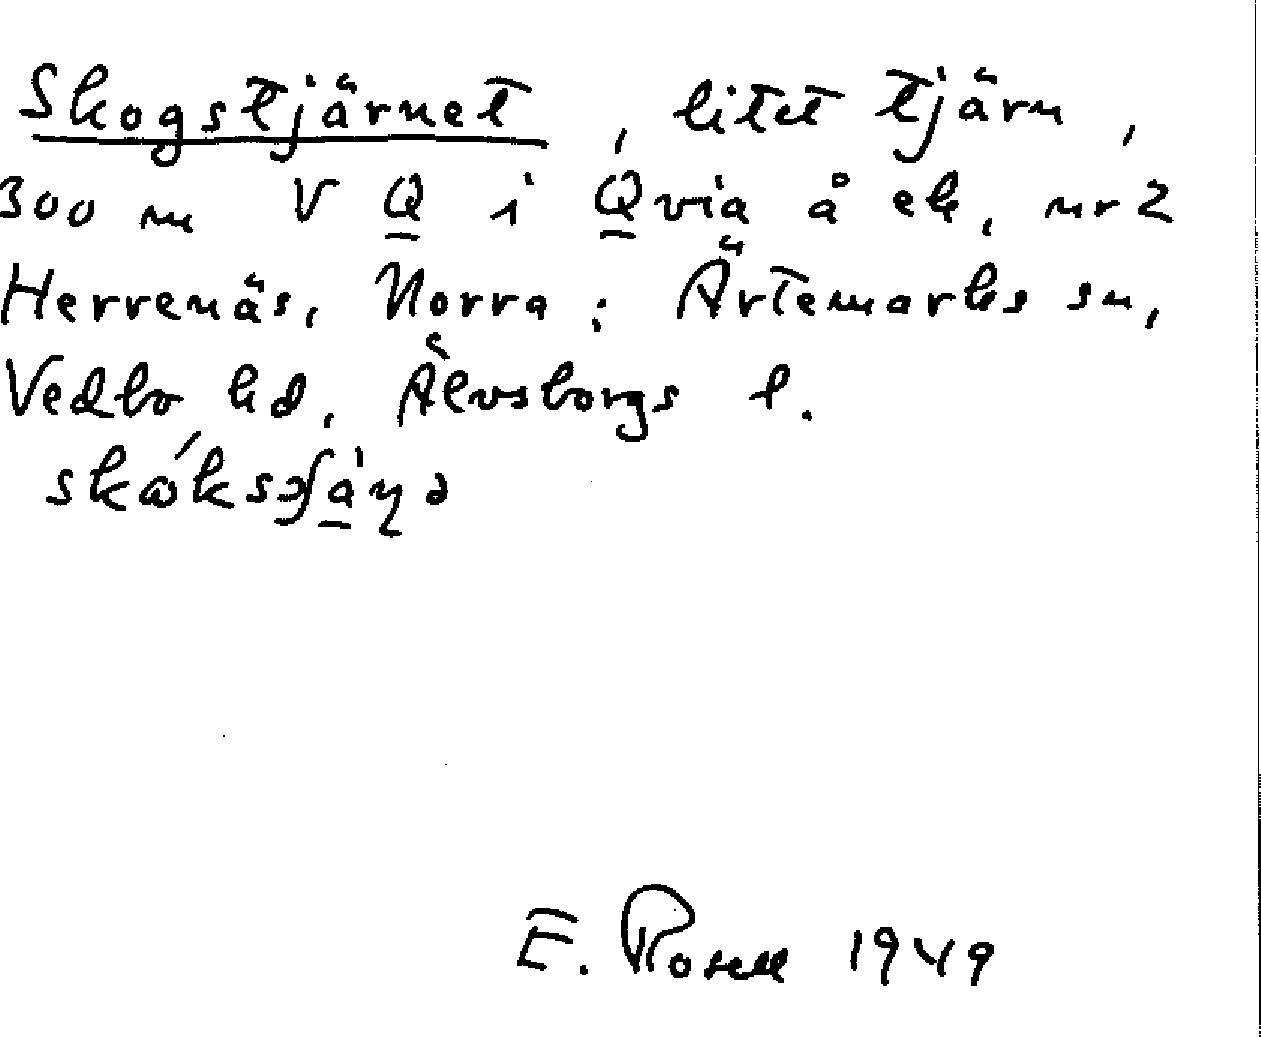 Skogstjärnet, litet tjärn,
300 m V Q i Qvia å ek, nr 2
Herrenäs, Norra; Ärtemarks sn,
Vedbo hd, Älvsborgs l.
E. Rosell 1949